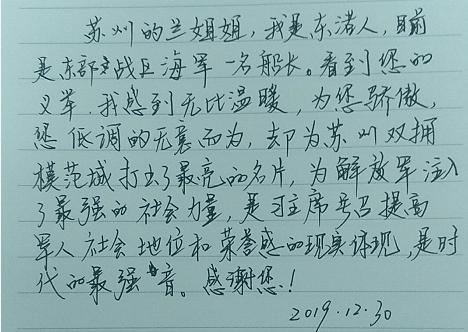 苏州的兰姐姐，我是东渚人，目前
是东部战区海军一名船长。看到您的
义举，我感到无比温暖，为您骄傲，
您低调的无意而为，却为苏州双拥
模范城打出了最亮的名片，为解放军注入
了最强的社会力量，是习主席号召提高
军人社会地位和荣誉感的现实体现，是时
代的最强音。感谢您！
2019.12.30